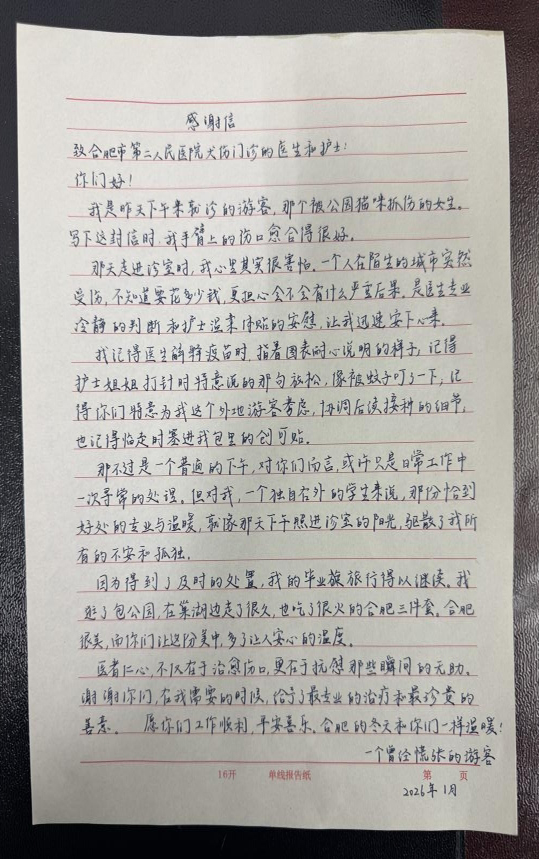 感谢信
致合肥市第二人民医院犬伤门诊的医生和护士：
你们好！
我是昨天下午来就诊的游客，那个被公园猫咪抓伤的女生。
写下这封信时，我手臂上的伤口愈合得很好。
那天走进诊室时，我心里其实很害怕。一个人在陌生的城市突然
受伤，不知道要花多少钱，更担心会不会有什么严重后果。是医生专业
冷静的判断和护士温柔体贴的安慰，让我迅速安下心来。
我记得医生解释疫苗时，指着图表耐心说明的样子，记得
护士姐姐打针时特意说的那句放松，像被蚊子叮了一下，记
得你们特意为我这个外地游客考虑，协调后续接种的细节，
也记得临走时塞进我包里的创可贴。
那不过是一个普通的下午，对你们而言，或许只是日常工作中
一次寻常的处理，但对我，一个独自在外的学生来说，那份恰到
好处的专业与温暖，就像那天下午照进诊室的阳光，驱散了我所
有的不安和孤独。
因为得到了及时的处置，我的毕业旅旅行得以继续。我
逛了包公园，在巢湖边走了很久，也吃了很火的合肥三件套。合肥
很美，而你们让这份美中，多了让人安心的温度。
医者仁心，不仅在于治愈伤口，更在于抚慰那些瞬间的无助。
谢谢你们，在我需要的时候，给予了最专业的治疗和最珍贵的
善意。 愿你们工作顺利，平安喜乐。合肥的冬天和你们一样温暖！
一个曾经慌张的游客
16开 单线报告纸 第 页
2026年1月